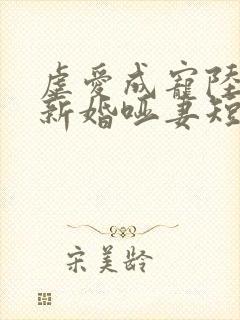 虐爱成宠陆
新婚哑妻短
宋美龄